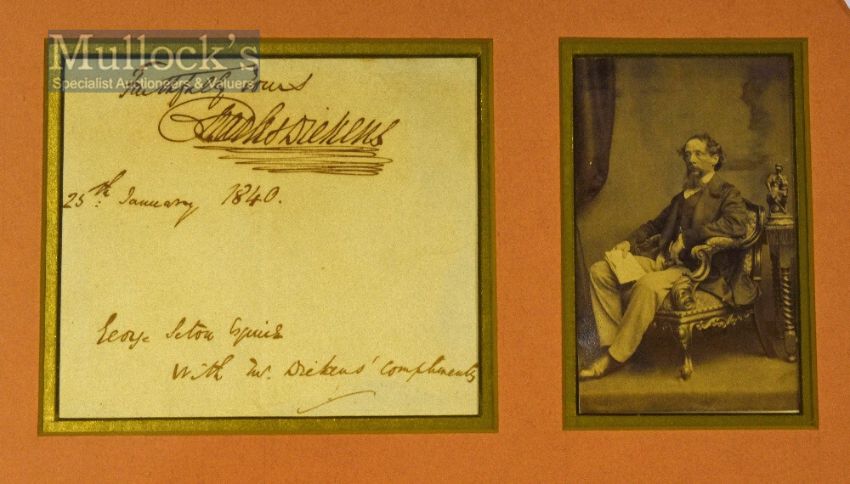 Mullock's
Specialist Auctioneers & Valuers
Faithfully Yours
Charles Dickens
25th January 1840.
George Seton Esquire
With Mr. Dickens' compliments